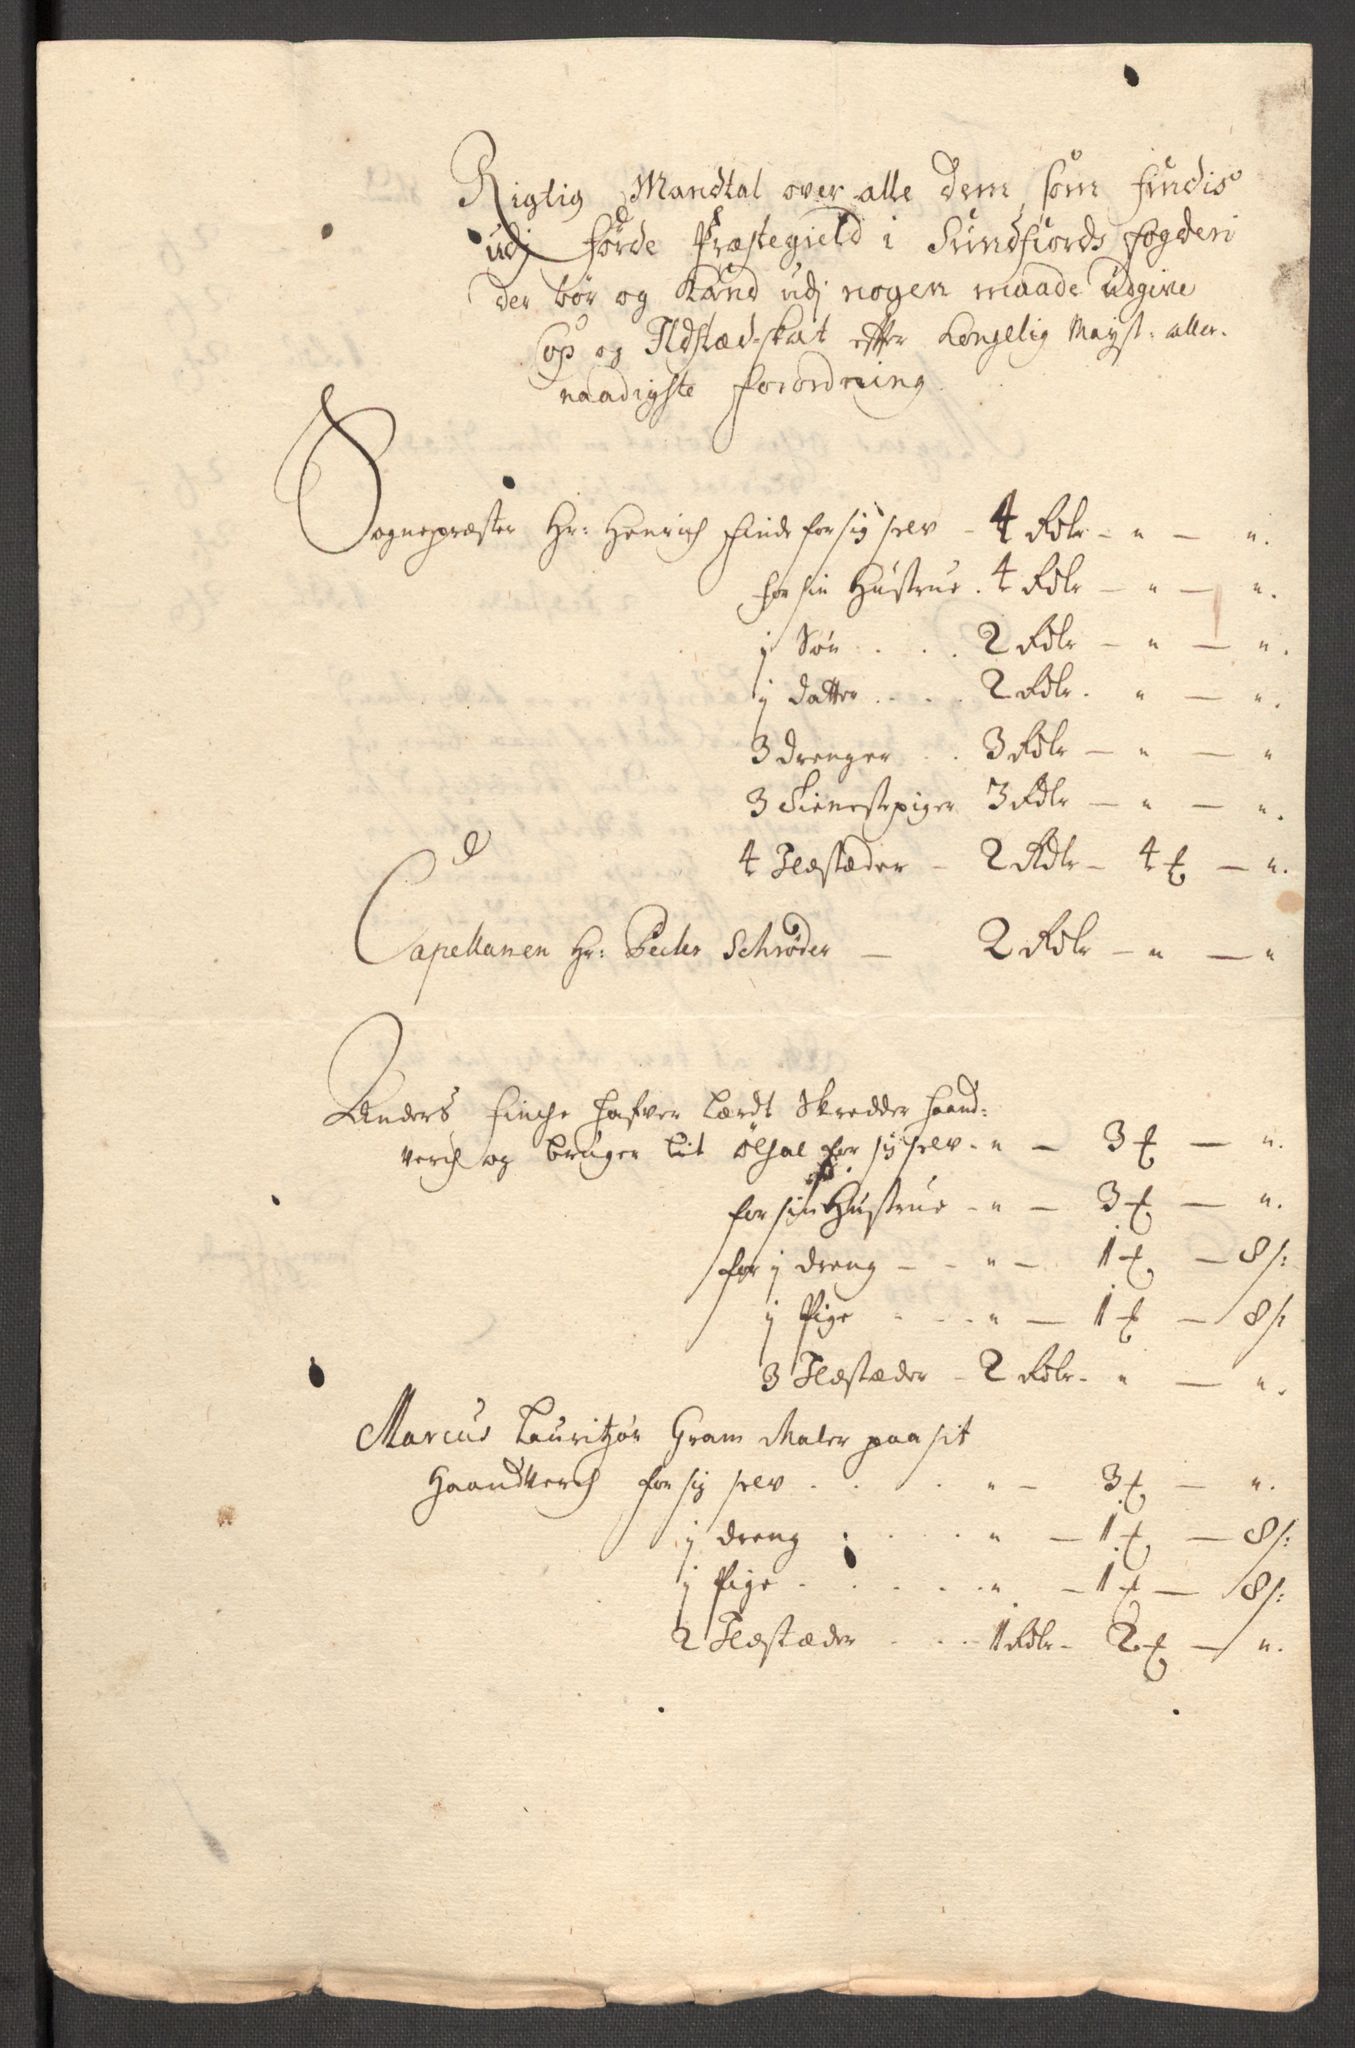 Rigtig Mandtal over alle dem, som findis
udj førde Præstegield i Sundfiords fogderi
der bør og Kand udj nogen maade udgive
Cop og Ildstæd-skat efter Kongelig Mayst: aller-
naadigste forordning.
Sognepræsten Hr: Henrich Finde for sig selv - 4 Rdlr - " - ".
for sin Hustrue . 4 Rdlr - " - ".
j Søn . . . 2 Rdlr - " - ".
j datter . . . 2 Rdlr . " - ".
3 drenger . . 3 Rdlr - " - "
3 Tienestepiger 3 Rdlr - " - ".
4 Ildstæder - 2 Rdlr - 4 ß - ".
Capellanen Hr: Peder Schrøder - 2 Rdlr - " - "
Anders finche hafver lærdt Skredder haand-
verch og bruger lit ölsal for sig selv - " - 3 ß - ".
for sin Hustrue - " - 3 ß - ".
for j dreng - - " - 1 ß - 8 s:
j Pige - - " - 1 ß - 8 s:
3 Ildstæder - 2 Rdlr - " - ".
Marcus Lauritzøn Gram Maler paa sit
Haandverch for sig selv . . . " - 3 ß - ".
j dreng . . . " - 1 ß - 8 s:
j Pige . . . . " - 1 ß - 8 s:
2 Ildstæder . . . 1 Rdlr - 2 ß - ".